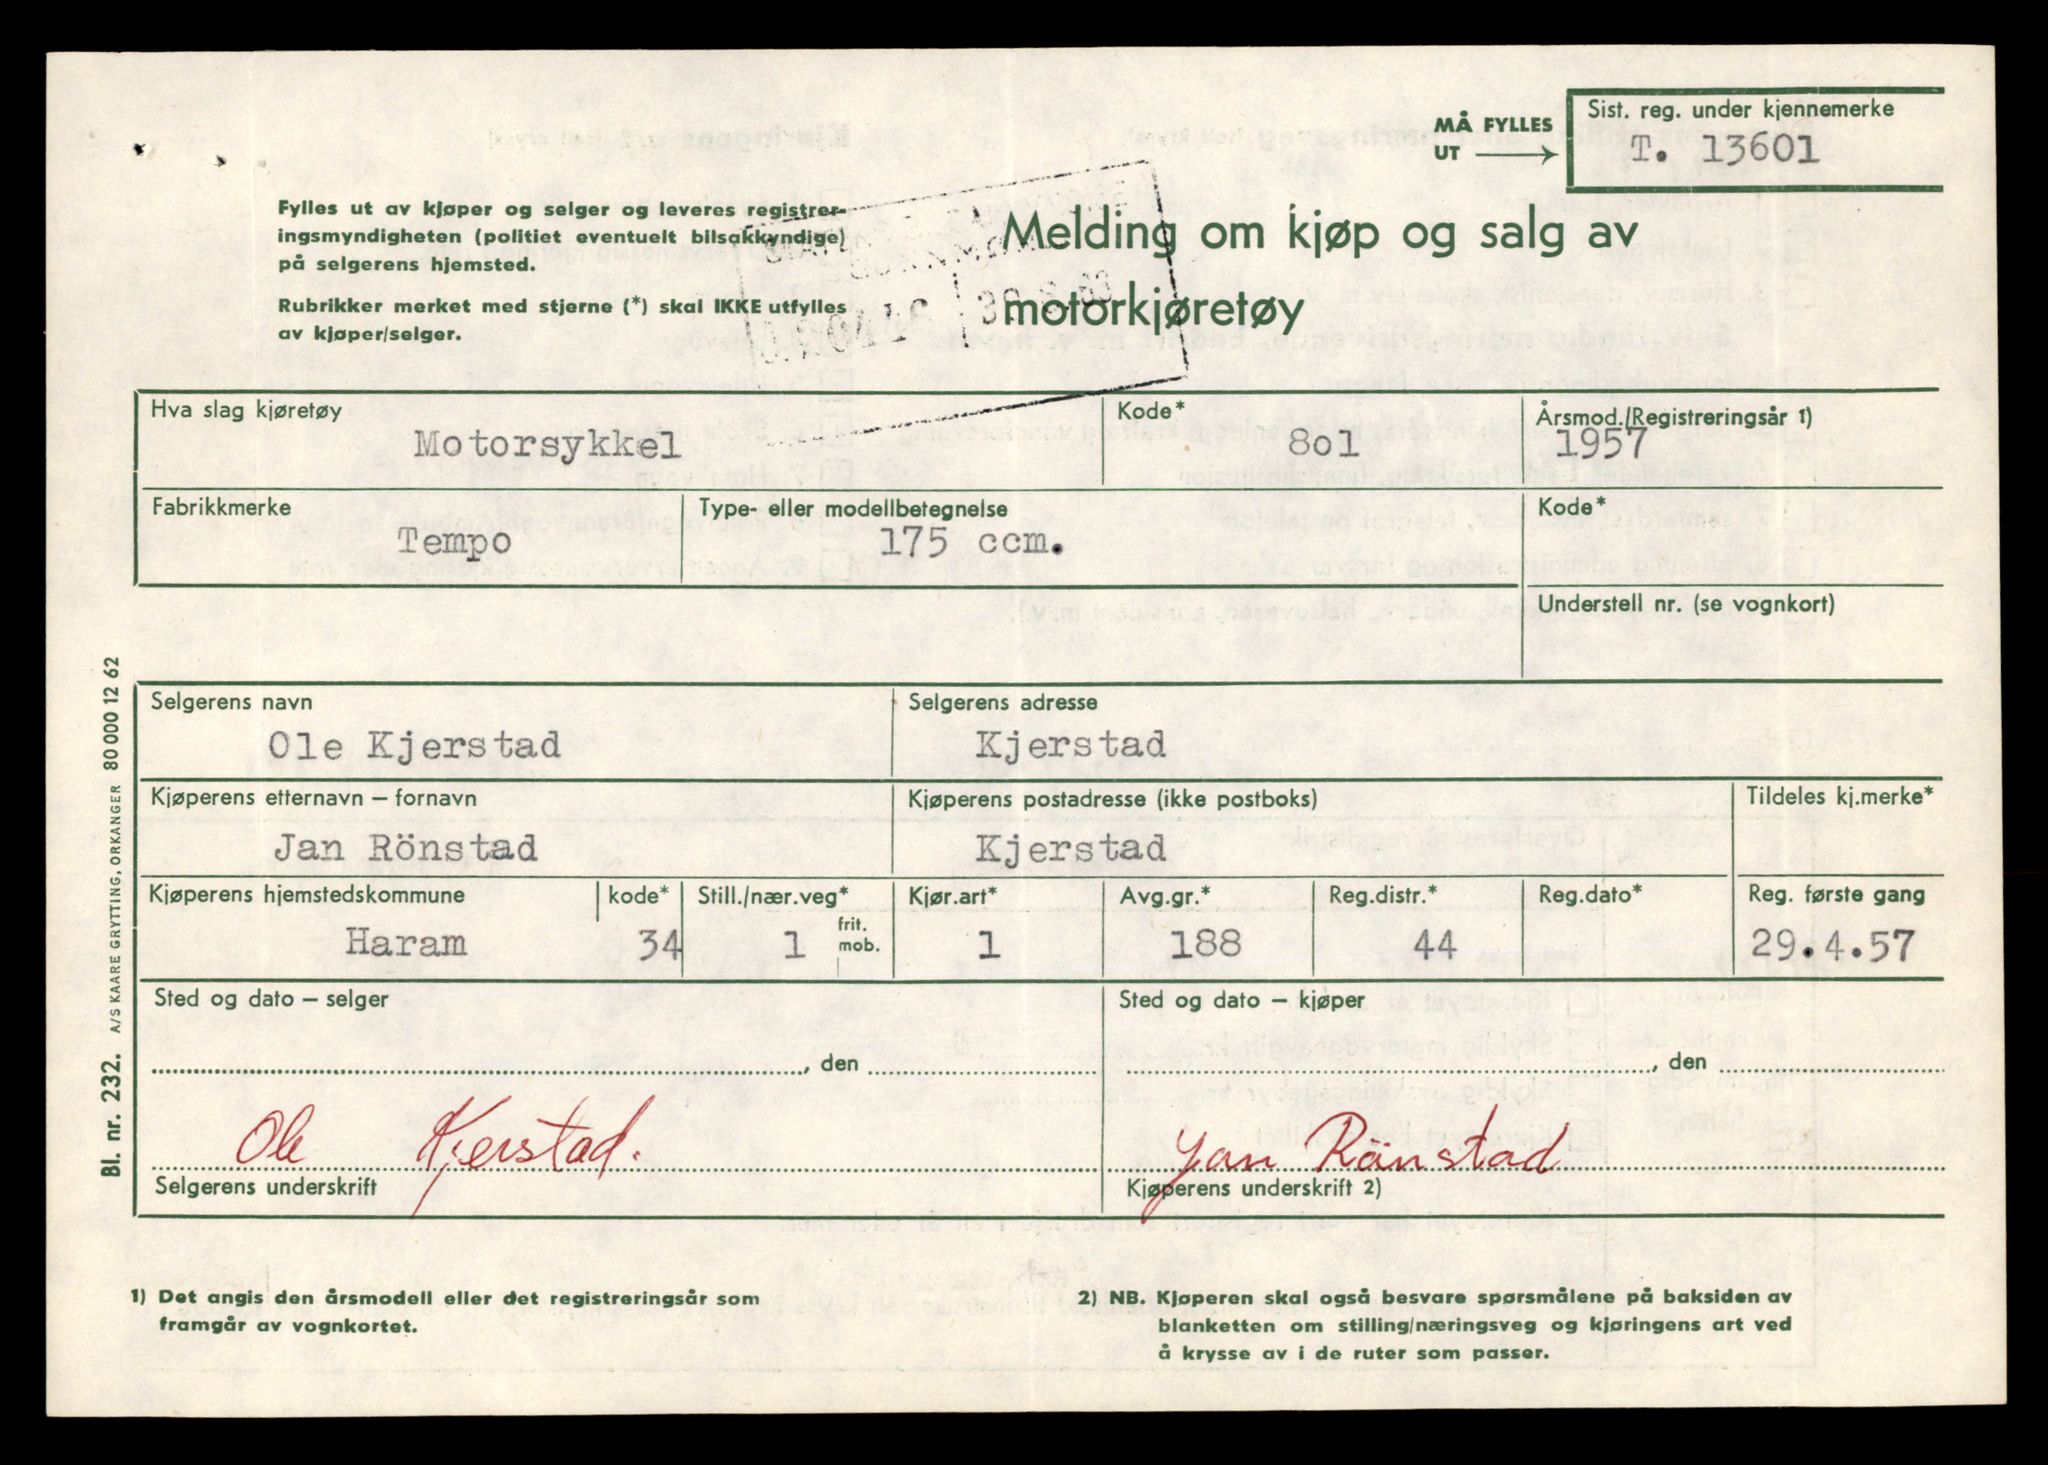 MÅ FYLLES
UT
Sist. reg. under kjennemerke
T. 13601
Fylles ut av kjøper og selger og leveres registrer-
ingsmyndigheten (politiet eventuelt bilsakkyndige)
på selgerens hjemsted.
Rubrikker merket med stjerne (*) skal IKKE utfylles
av kjøper/selger.
Melding om kjøp og salg av
motorkjøretøy
Hva slag kjøretøy
Motorsykkel
Kode*
8o1
Årsmod./Registreringsår 1)
1957
Fabrikkmerke
Tempo
Type- eller modellbetegnelse
175 ccm.
Kode*
Understell nr. (se vognkort)
Selgerens navn
Ole Kjerstad
Selgerens adresse
Kjerstad
Kjøperens etternavn – fornavn
Jan Rönstad
Kjøperens postadresse (ikke postboks)
Kjerstad
Tildeles kj.merke*
Kjøperens hjemstedskommune
Haram
kode*
34
Still./nær.veg*
1
frit.
mob.
Kjør.art*
1
Avg.gr.*
188
Reg.distr.*
44
Reg.dato*
Reg. første gang
29.4.57
Sted og dato – selger
, den
Ole Kjerstad.
Selgerens underskrift
Sted og dato – kjøper
, den
Jan Rönstad
Kjøperens underskrift 2)
1) Det angis den årsmodell eller det registreringsår som
framgår av vognkortet.
2) NB. Kjøperen skal også besvare spørsmålene på baksiden av
blanketten om stilling/næringsveg og kjøringens art ved
å krysse av i de ruter som passer.
Bl. nr. 232. A/S KAARE GRYTTING, ORKANGER 80 000 12 62